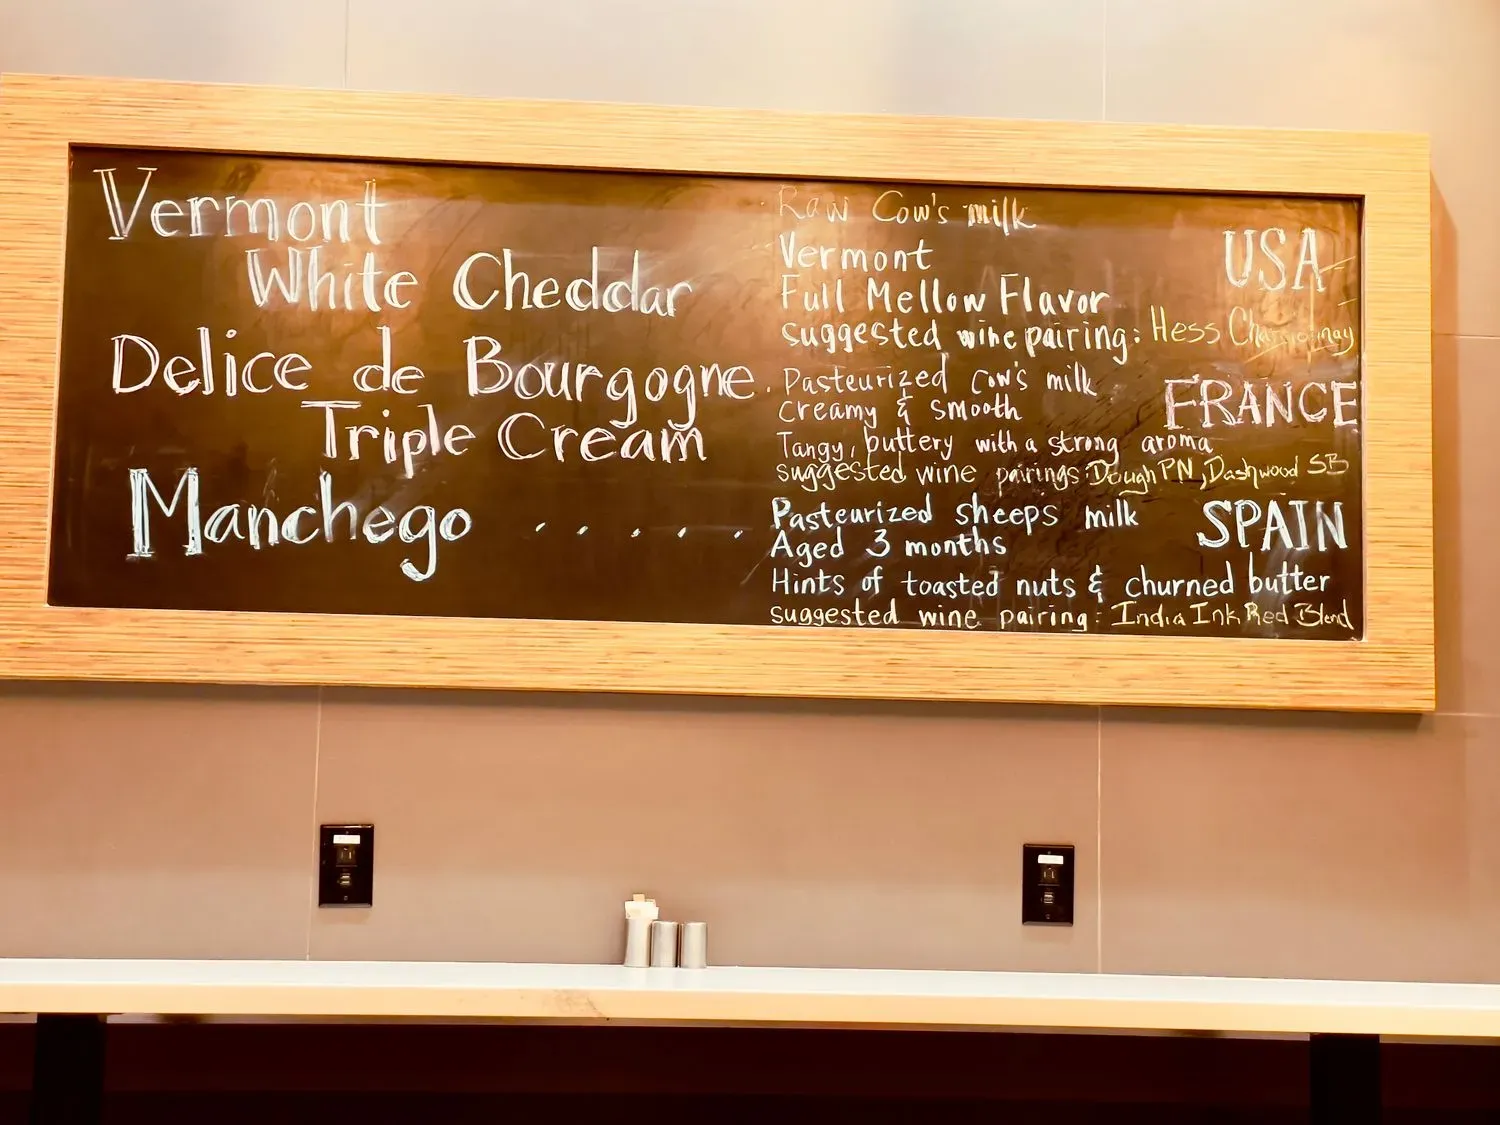 Vermont
White Cheddar
Raw Cow's milk
Vermont
Full Mellow Flavor
suggested wine pairing: Hess Chardonnay
USA
Delice de Bourgogne
Triple Cream
Pasteurized cow's milk
creamy & smooth
Tangy, buttery with a strong aroma
suggested wine pairings: Dough PN, Dashwood SB
FRANCE
Manchego . . . . .
Pasteurized sheeps milk
Aged 3 months
Hints of toasted nuts & churned butter
suggested wine pairing: India Ink Red Blend
SPAIN